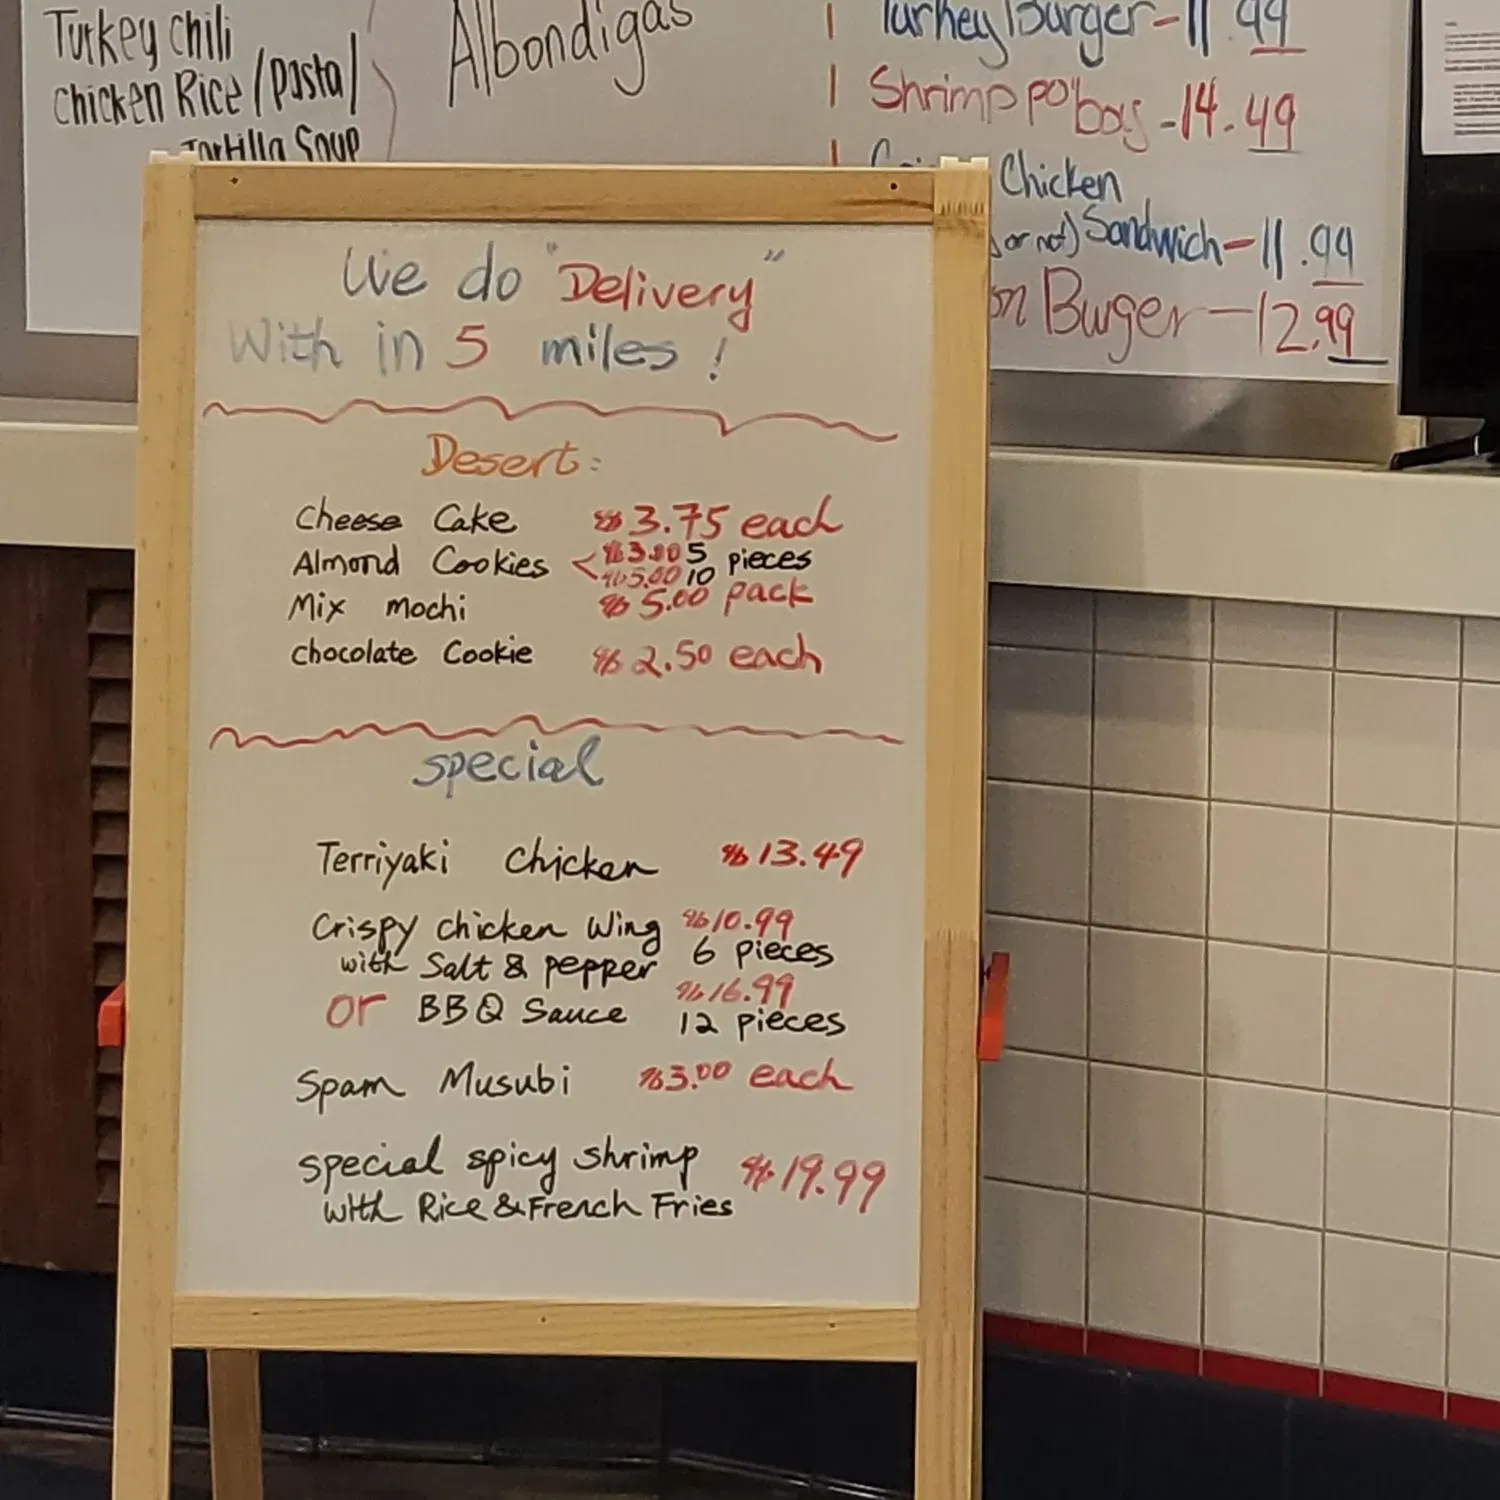 Turkey Chili
Chicken Rice / Pasta /
Tortilla Soup
Albondigas
Turkey Burger - 11.99
Shrimp po'boys - 14.49
Chicken
or not) Sandwich - 11.99
Burger - 12.99
We do "Delivery"
With in 5 miles!
Desert:
Cheese Cake $3.75 each
Almond Cookies < $3.00 5 pieces
$5.00 10
Mix mochi $5.00 pack
chocolate Cookie $2.50 each
special
Terriyaki Chicken $13.49
Crispy chicken Wing $10.99
with Salt & pepper 6 pieces
or BBQ Sauce $16.99
12 pieces
Spam Musubi $3.00 each
special spicy shrimp $19.99
with Rice & French Fries